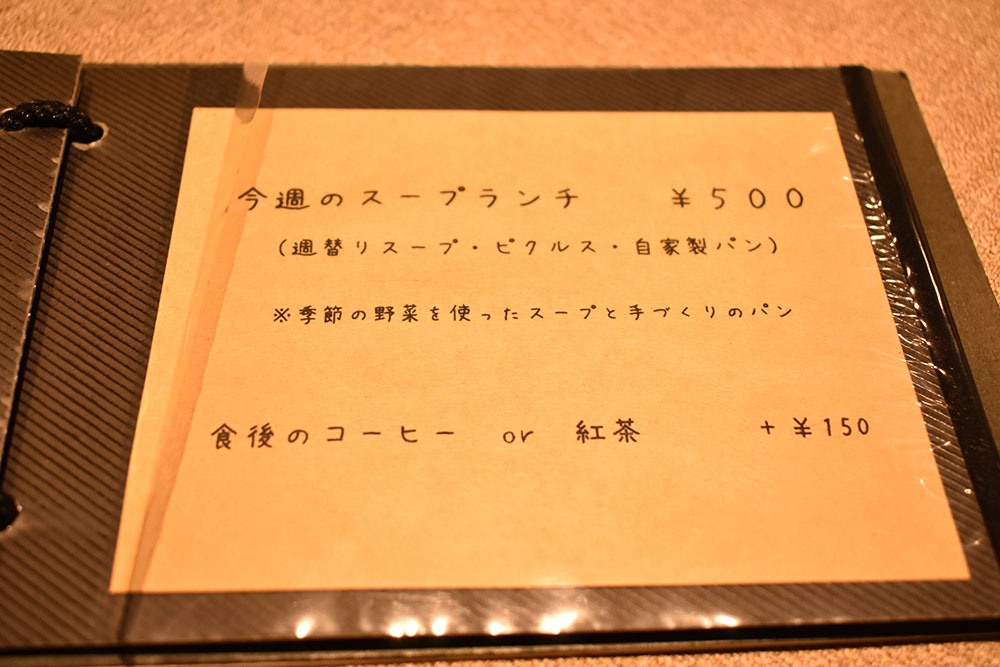 今週のスープランチ ￥500
(週替りスープ・ピクルス・自家製パン)
※季節の野菜を使ったスープと手づくりのパン
食後のコーヒー or 紅茶 +￥150